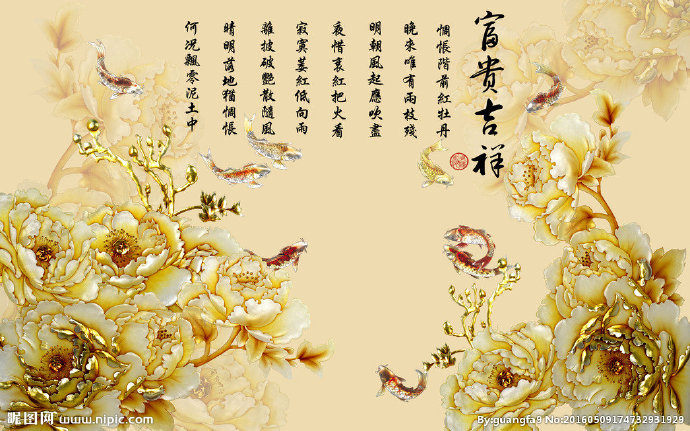 富貴吉祥
惆悵階前紅牡丹
晚來唯有兩枝殘
明朝風起應吹盡
夜惜衰紅把火看
寂寞萎紅低向雨
離披破艷散隨風
晴明落地猶惆悵
何況飄零泥土中
昵图网 www.nipic.com
By:guangfa9 No:20160509174732931929